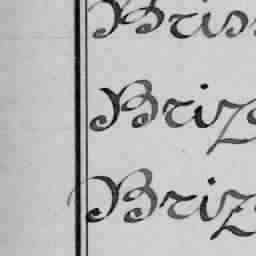 Bris
Briz
Briz